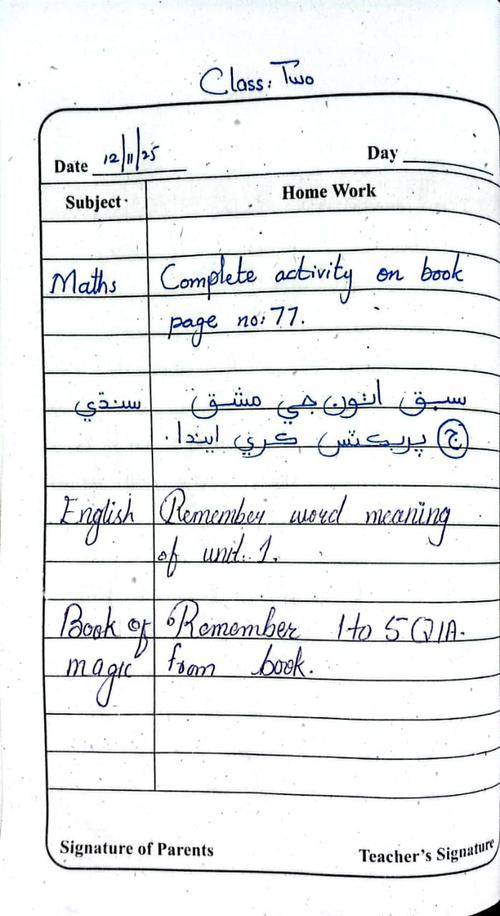 Class: Two
Date 12/11/25 Day
Subject Home Work
Maths Complete activity on book
page no: 77.
سنڌي سبق اٺون جي مشق
ج پريڪٽس ڪري ايندا.
English Remember word meaning
of unit. 1.
Book of Remember 1 to 5 Q/A.
magic from book.
Signature of Parents Teacher's Signature